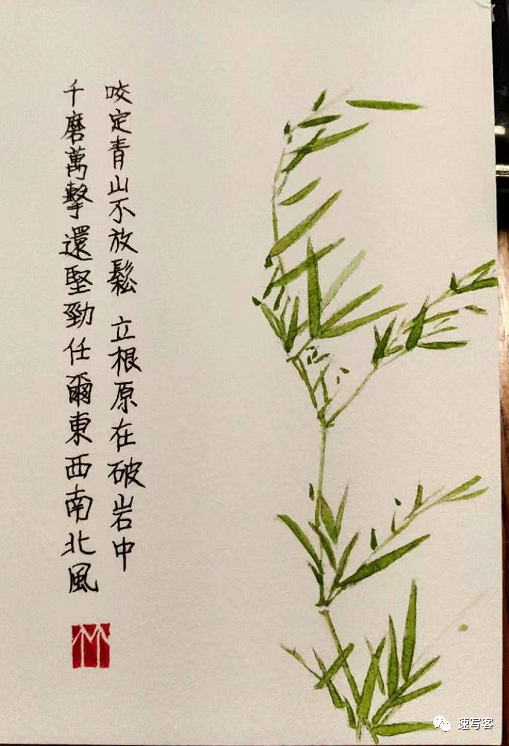 咬定青山不放鬆 立根原在破岩中
千磨萬擊還堅勁任爾東西南北風
竹
速写客